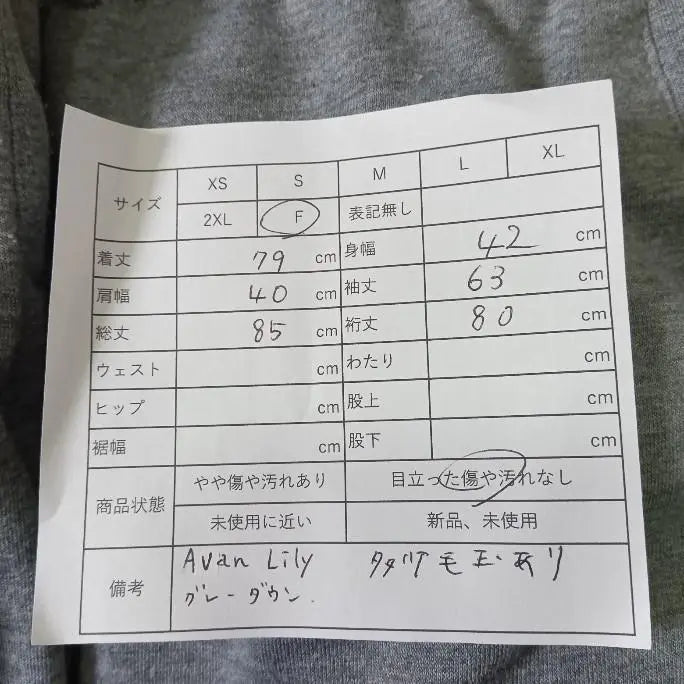 サイズ XS S M L XL
2XL F 表記無し
着丈 79 cm 身幅 42 cm
肩幅 40 cm 袖丈 63 cm
総丈 85 cm 裄丈 80 cm
ウェスト cm わたり cm
ヒップ cm 股上 cm
裾幅 cm 股下 cm
商品状態 やや傷や汚れあり 目立った傷や汚れなし
未使用に近い 新品、未使用
備考 Avan Lily 毛玉あり
グレーダウン.